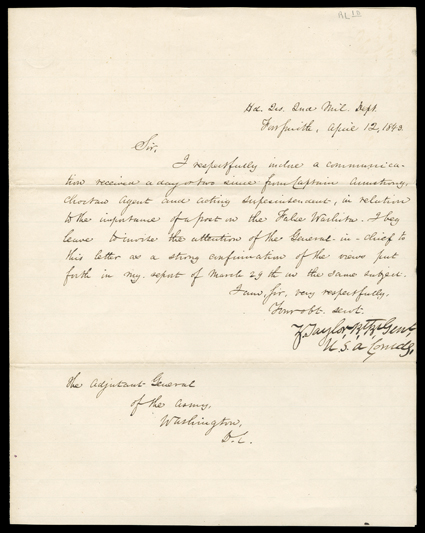 Hd. Qrs. 2nd Mil. Dept.
Fort Smith, April 12, 1843.
Sir,
I respectfully inclose a communica-
tion received a day or two since from Captain Armstrong,
Choctaw Agent and acting superintendent, in relation
to the importance of a post on the False Washita. I beg
leave to invite the attention of the General-in-chief to
this letter as a strong confirmation of the views put
forth in my report of March 29th on the same subject.
I am, Sir, very respectfully,
Your obt. servt.
Z. Taylor Bt. Br. Genl,
U.S.A. Comdg.
The Adjutant General
of the Army,
Washington,
D.C.